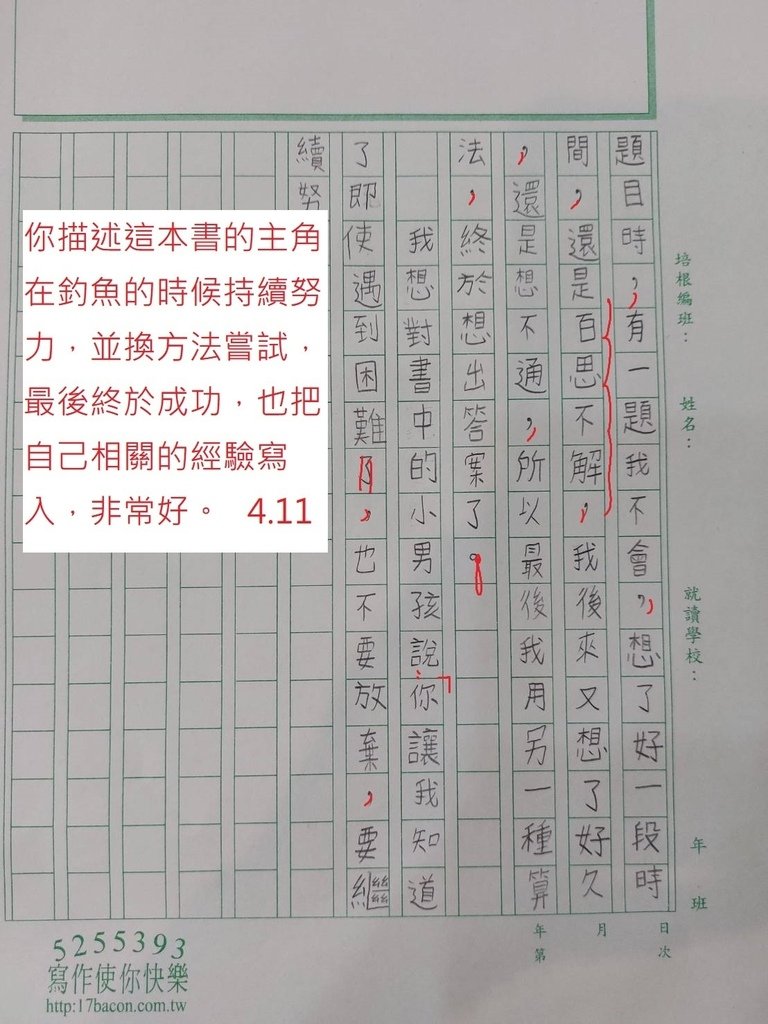 題目時，有一題我不會，想了好一段時
間，還是百思不解，我後來又想了好久
，還是想不通，所以最後我用另一種算
法，終於想出答案了。
我想對書中的小男孩說：「你讓我知道
了即使遇到困難了，也不要放棄，要繼
續努
你描述這本書的主角
在釣魚的時候持續努
力，並換方法嘗試，
最後終於成功，也把
自己相關的經驗寫
入，非常好。 4.11
培根編班：
姓名：
就讀學校：
年 班
年 月 日
第 次
5255393
寫作使你快樂
http:17bacon.com.tw